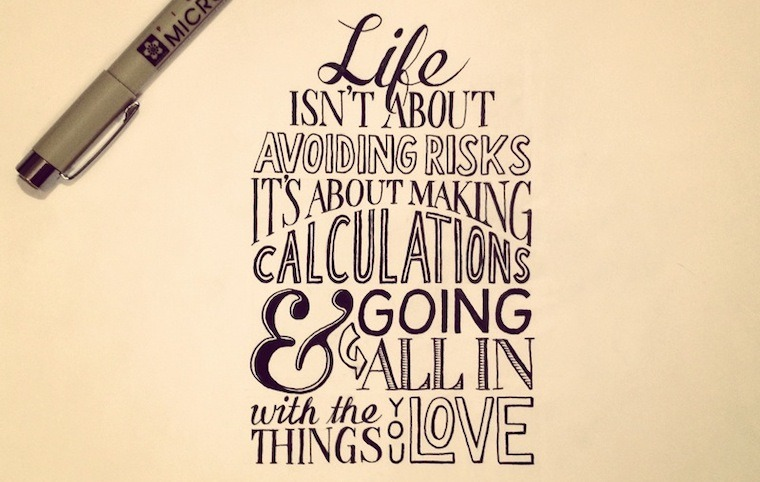 MICR
Life
ISN'T ABOUT
AVOIDING RISKS
IT'S ABOUT MAKING
CALCULATIONS
& GOING
ALL IN
with the
THINGS YOU LOVE